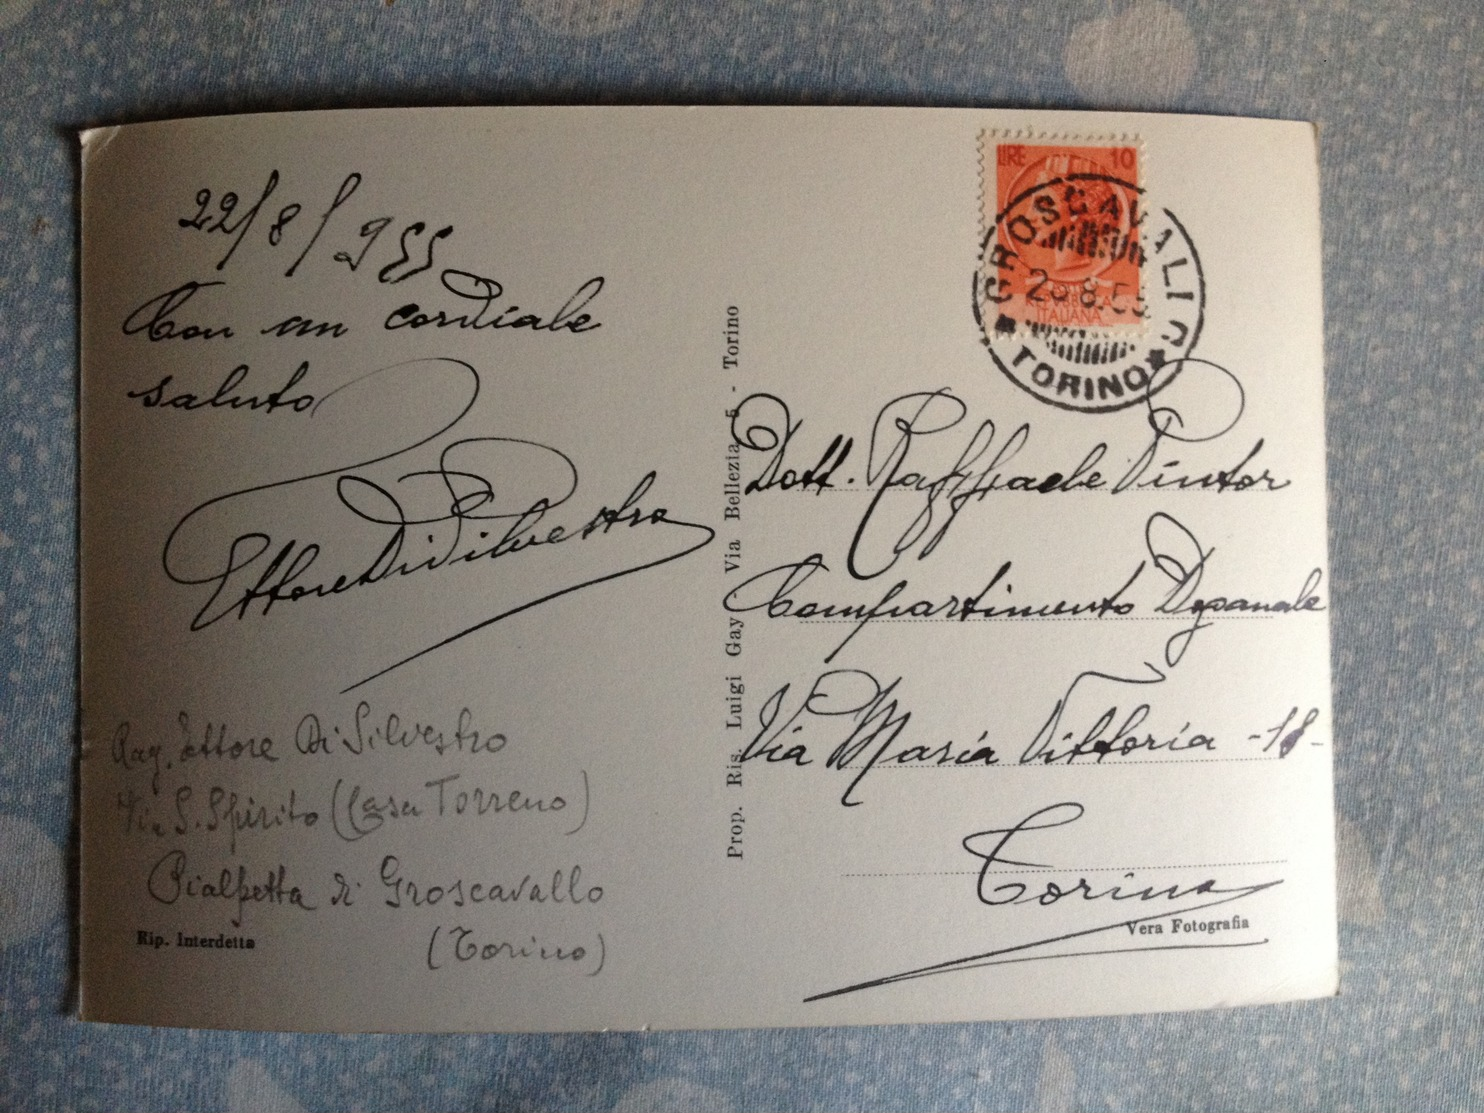 22/8/955
Con un cordiale
saluto
Ettore Di Silvestro
Rag. Ettore Di Silvestro
Via S. Spirito (Casa Torreno)
Pialpetta di Groscavallo
(Torino)
Rip. Interdetta
Prop. Ris. Luigi Gay - Via Bellezia 5 - Torino
LIRE 10
REPUBBLICA
ITALIANA
GROSCAVALLO
8.55
TORINO
Dott. Raffaele Pintor
Compartimento Doganale
Via Maria Vittoria -18-
Torino
Vera Fotografia